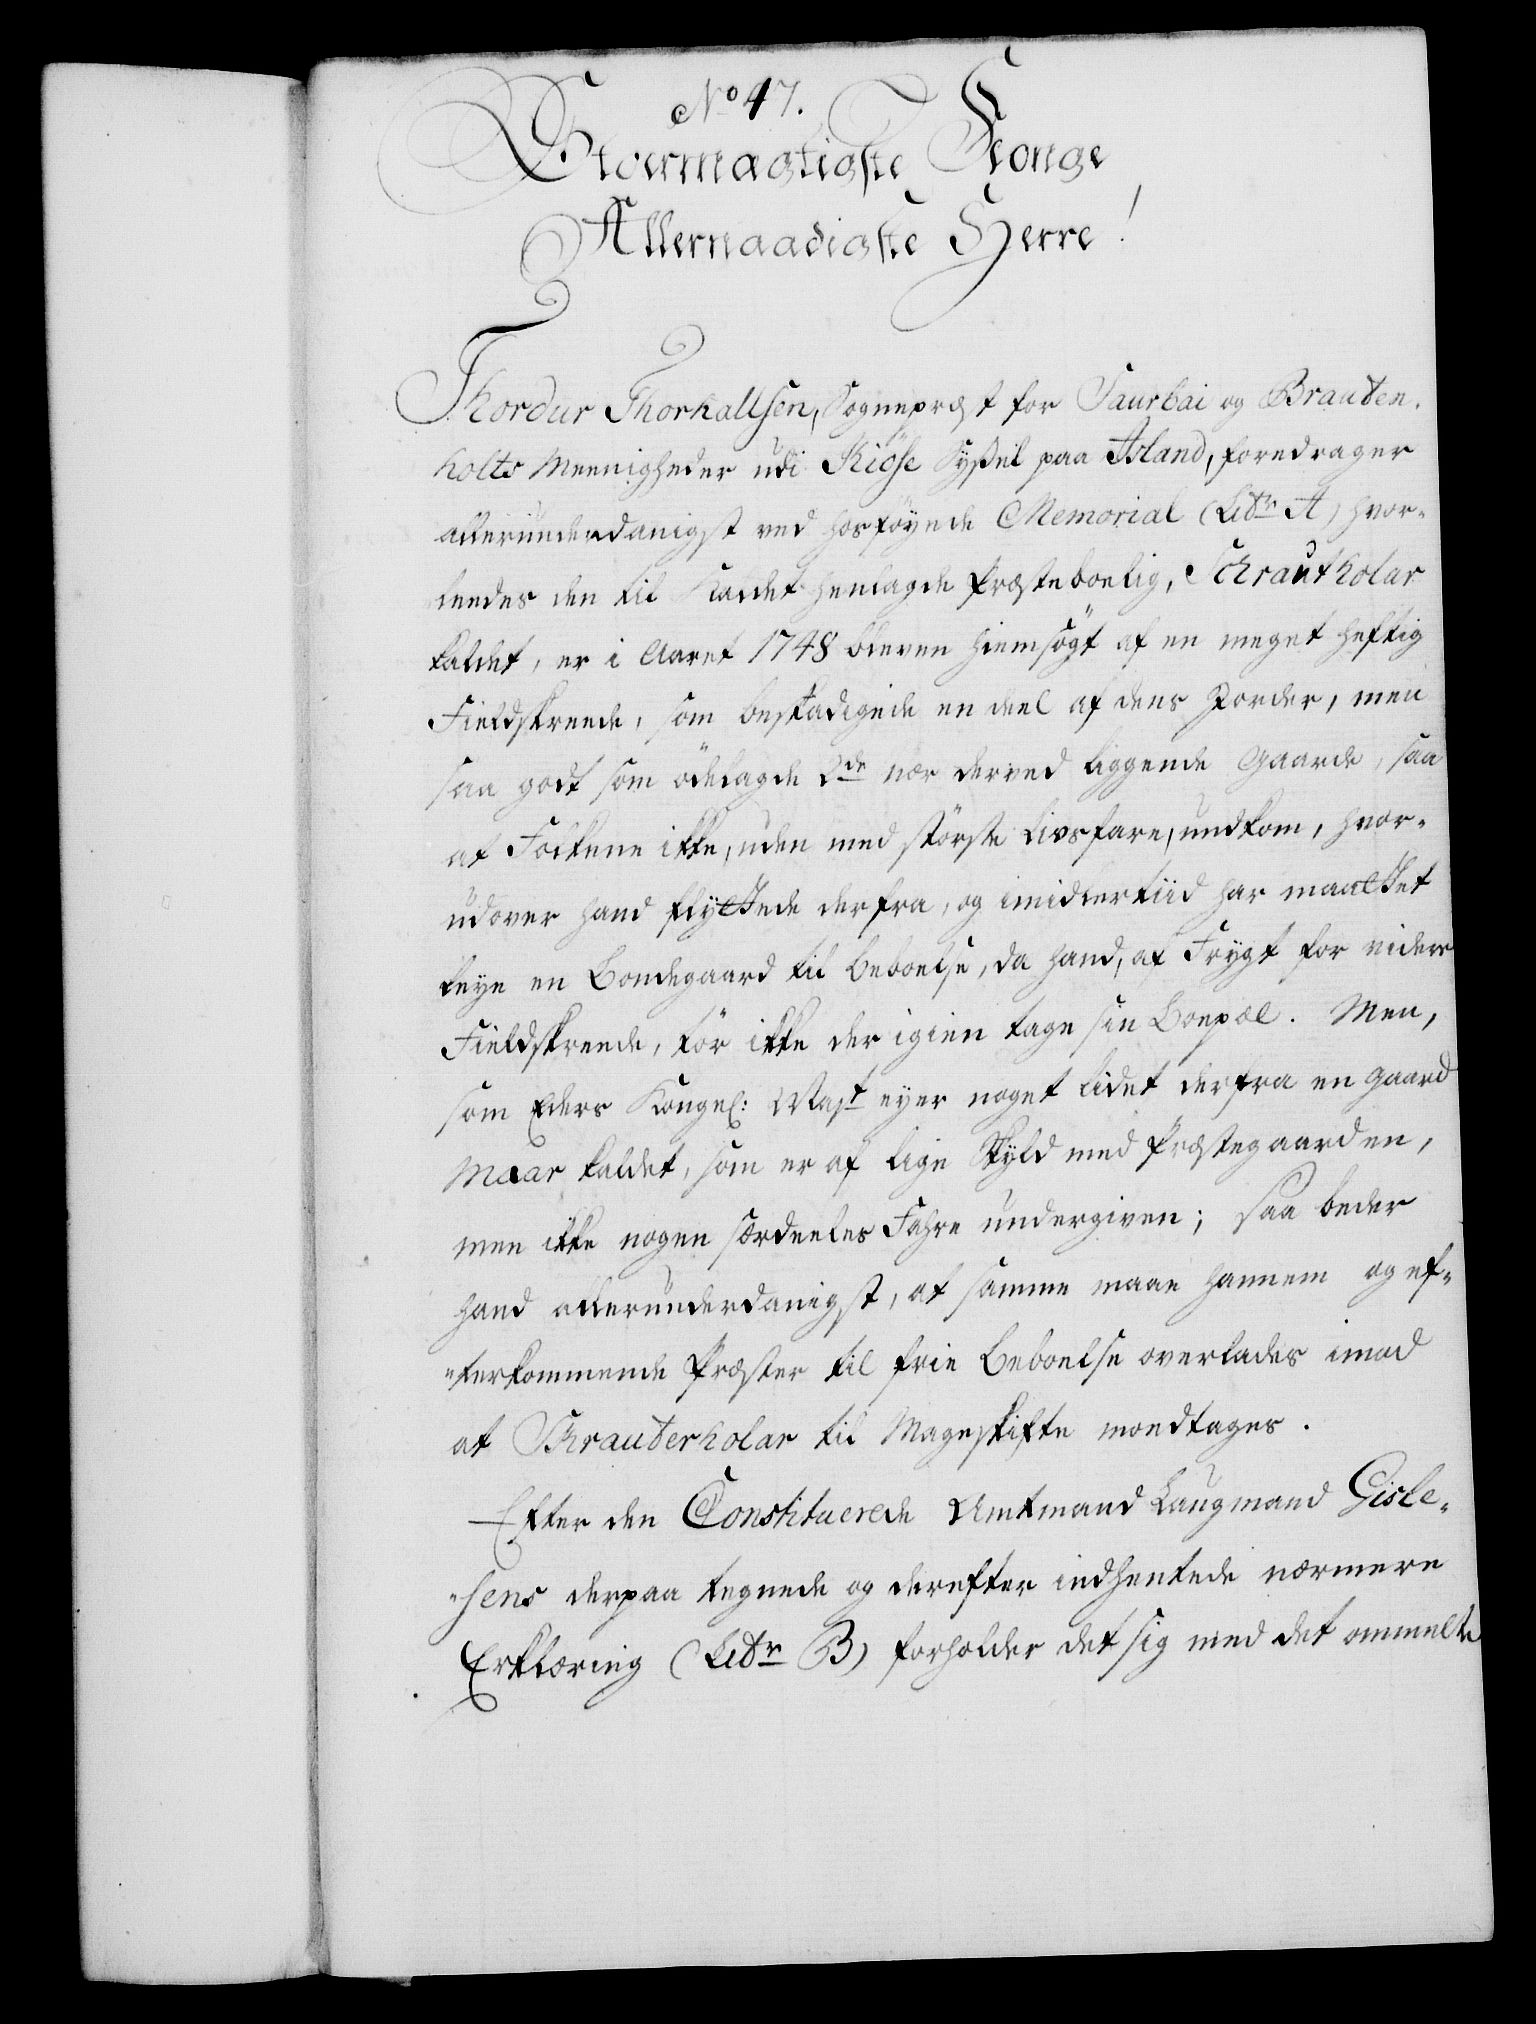 No 47.
Stoermægtigste Konge
Allernaadigste Herre!
Thordur Thorkallsen, Sognepræst for Saurbai og Brauten-
holts Meenigheder udi Kiöse Syßel paa Island, foredrager
allerunderdanigst ved hosföyede Memorial (Litr. A) hvor-
ledes den til Kaldet henlagde Præsteboelig, Schrautholar
kaldet, er i Aaret 1748 bleven hiemsögt af en meget heftig
Fieldskreede, som beskadigede en deel af dens Jorder, men
saa godt som ödelagde 2de nær derved liggende Gaarde, saa
at Folkene ikke, uden med störste Livsfare, undkom, hvor-
udover hand flyttede derfra, og imidlertiid har maattet
leye en Bondegaard til Beboelse, da hand, af Frygt for videre
Fieldskreede, tör ikke der igien tage sin Boepæl. Men,
som Eders Kongel: Mayt eyer noget lidet derfra en Gaard
Maar kaldet, som er af lige Skyld med Præstegaarden,
men ikke nogen særdeeles Fahre undergiven; saa beder
hand allerunderdanigst, at samme maae hannem og ef-
"terkommende Præster til frie Beboelse overlades imod
at Skrauterholar til Mageskifte modtages.
Efter den Constituerede Amtmand Laugmand Gisle-
"sens derpaa tegnede og derefter indhentede nærmere
Erklæring (Litr B) forholder det sig med det anmelte